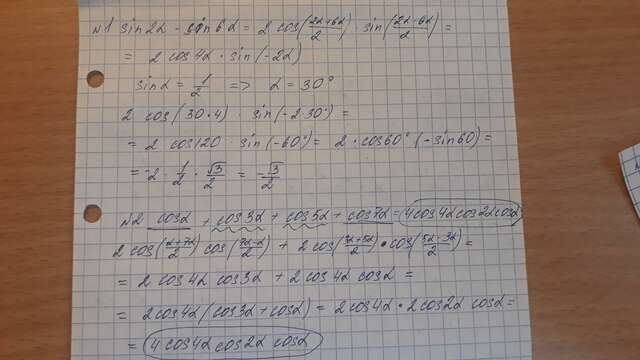 N1 sin2α - sin6α = 2 cos(2α+6α/2) · sin(2α-6α/2) =
= 2 cos4α · sin(-2α)
sinα = 1/2 => α = 30°
2 cos(30·4) · sin(-2·30°) =
= 2 cos120 · sin(-60°) = 2 · cos60° (-sin60) =
= -2 · 1/2 · √3/2 = -√3/2
N2 cosα + cos3α + cos5α + cos7α = 4cos4αcos2αcosα
2 cos(α+7α/2) cos(7α-α/2) + 2 cos(3α+5α/2) · cos(5α-3α/2) =
= 2 cos4α cos3α + 2 cos4α cosα =
= 2cos4α (cos3α + cosα) = 2cos4α · 2cos2α cosα =
= 4 cos4α cos2α cosα